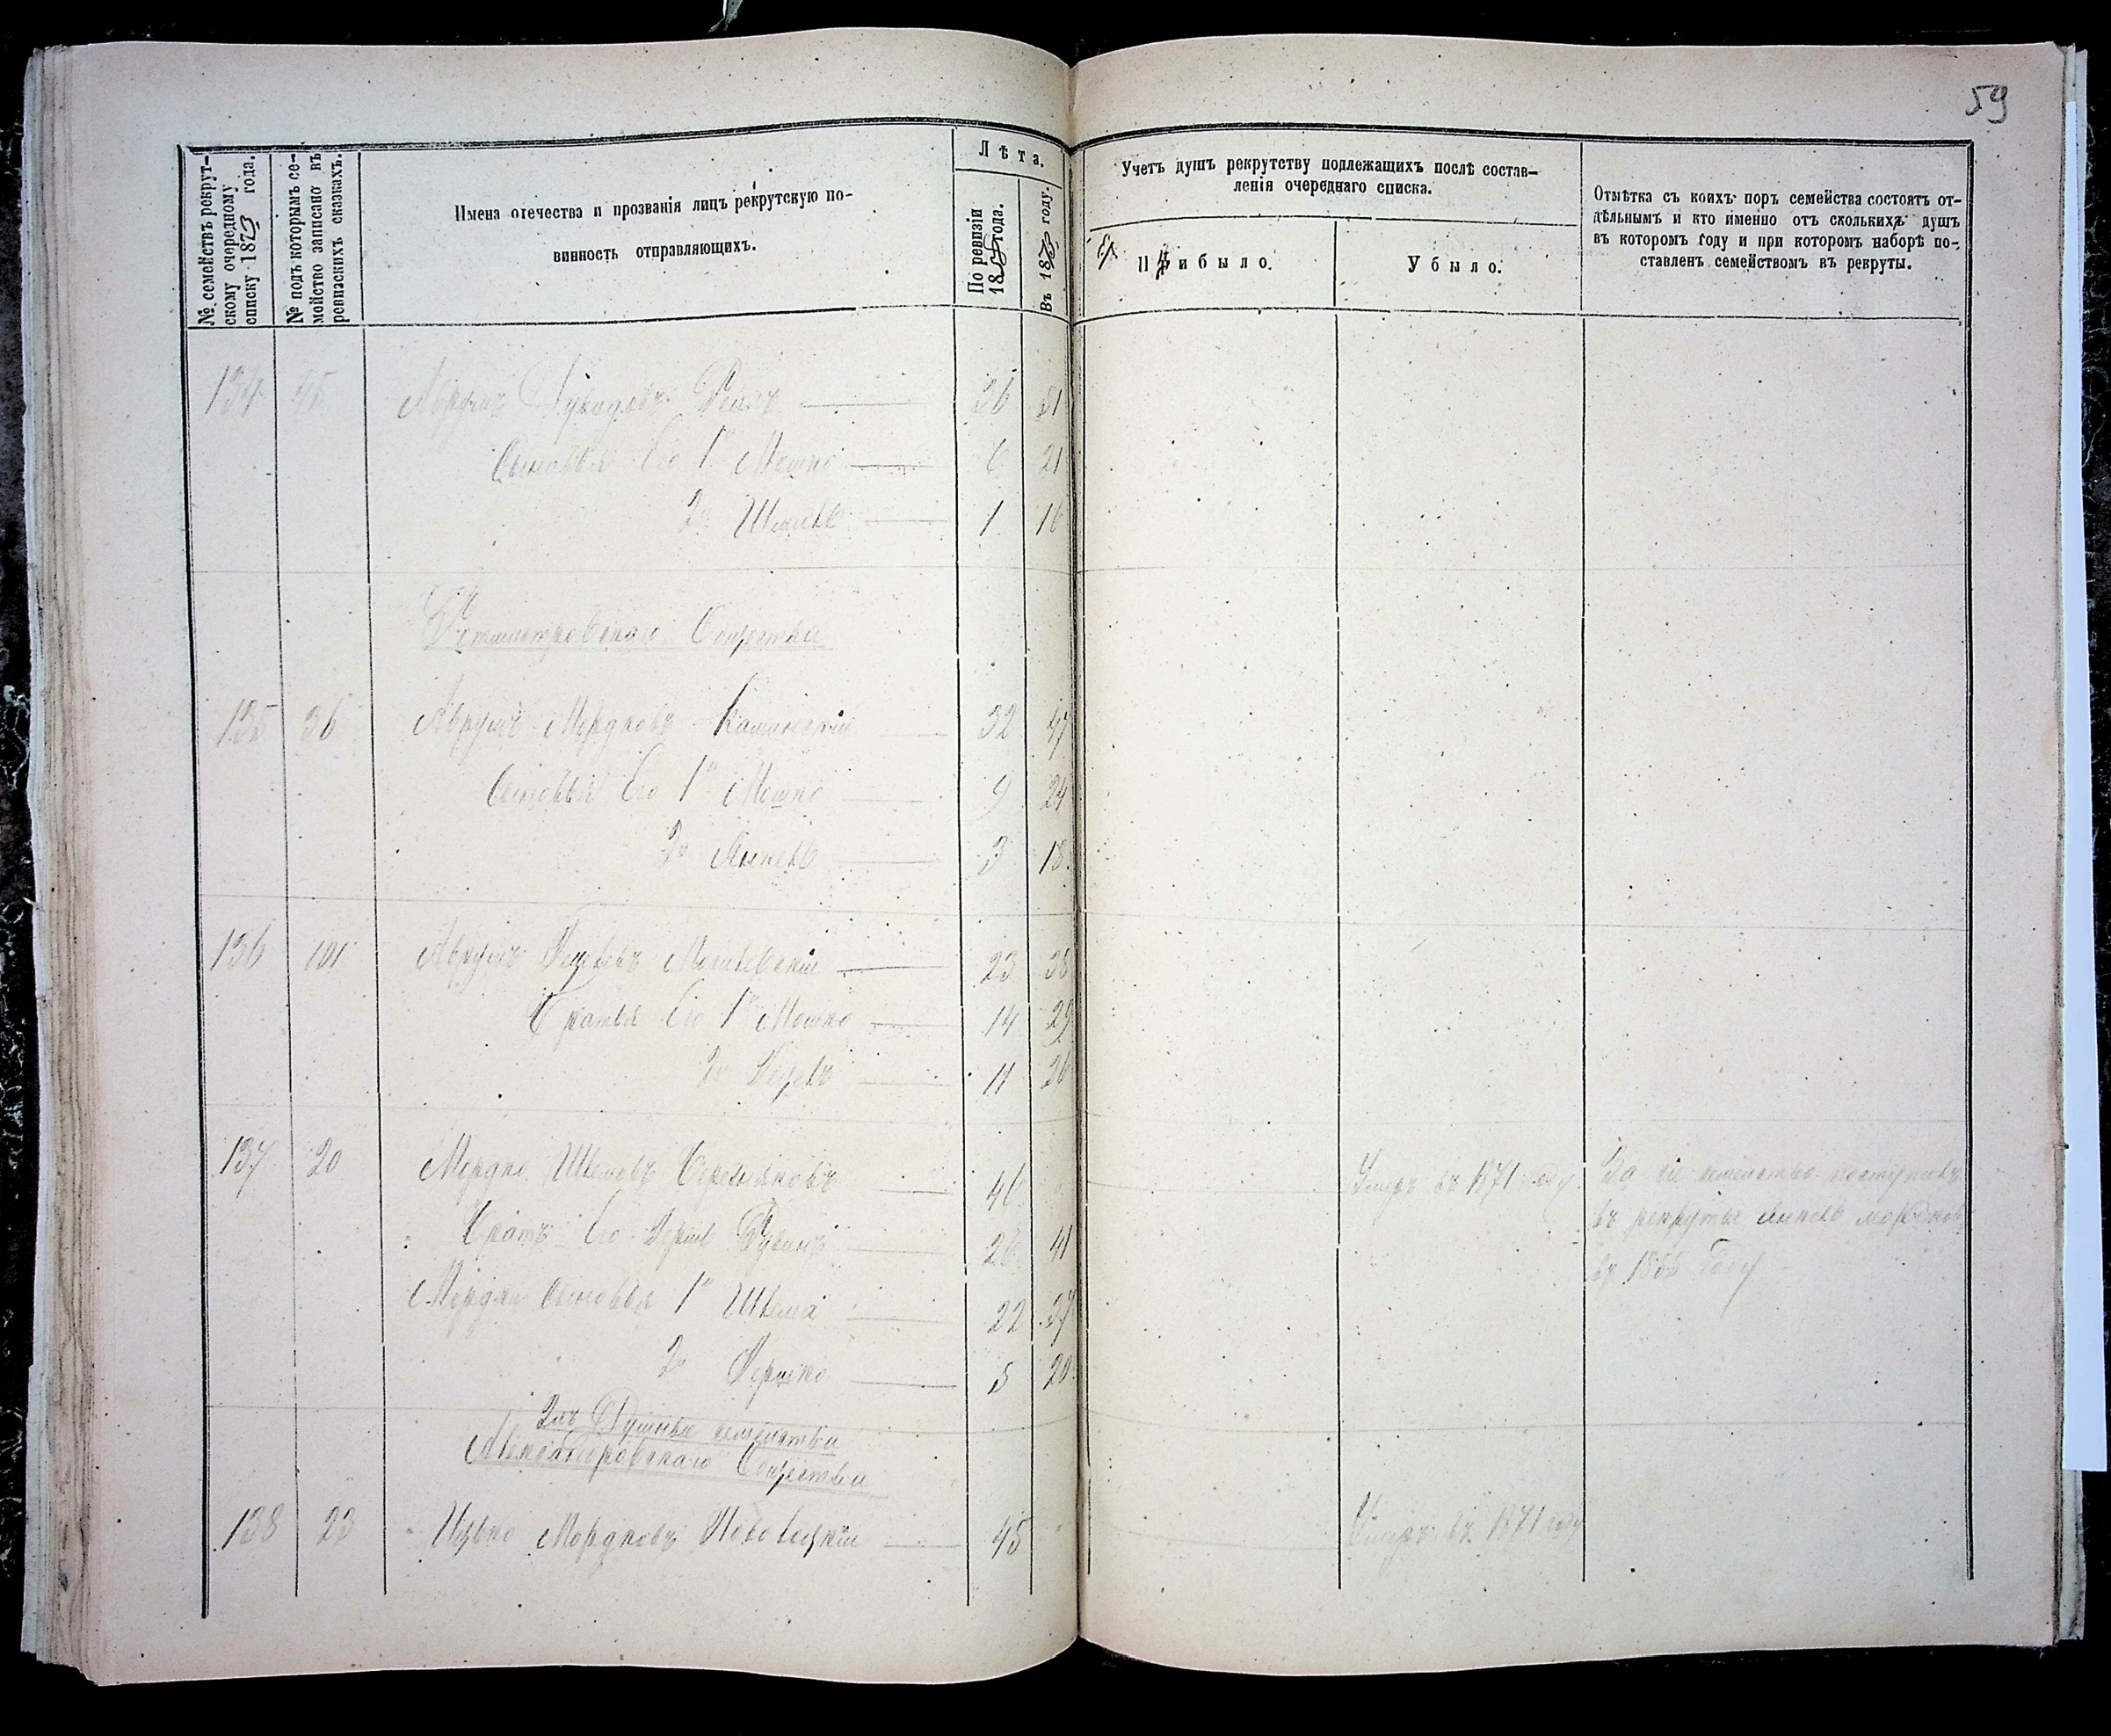 59
№ семействъ рекрут-
скому очередному
списку 1873 года.
№ подъ которымъ се-
мейство записано въ
ревизскихъ сказкахъ.
Имена отечества и прозванія лицъ рекрутскую по-
винность отправляющихъ.
Лѣта.
По ревизіи
1858 года.
Въ 1873 году.
Учетъ душъ рекрутству подлежащихъ послѣ состав-
ленія очереднаго списка.
Прибыло.
Убыло.
Отмѣтка съ коихъ поръ семейства состоятъ от-
дѣльнымъ и кто именно отъ сколькихъ душъ
въ которомъ году и при которомъ наборѣ по-
ставленъ семействомъ въ рекруты.
134 45 Аврумъ 36 51
Сыновья Его 1й Мошко 6 21
2й 1 16
Общества
135 36 Аврумъ Мордковъ Каминскій 32 47
Сыновья Его 1й Мошко 9 24
2й Янкель 3 18
136 101 Аврумъ 23 38
Братья Его 1й Мошко 14 29
2й Берль 11 26
137 20 Мордко 46 Умеръ въ 1871 году За сіе семейство поступилъ
въ рекруты Янкель Мордков
Братъ Его 26 41
въ 1858 году
Мордки Сыновья 1й 22 37
2й Гершко 5 20
2хъ Душныя семейства
Александровскаго Общества
138 23 Ицько Мордковъ 45 Умеръ въ 1871 году